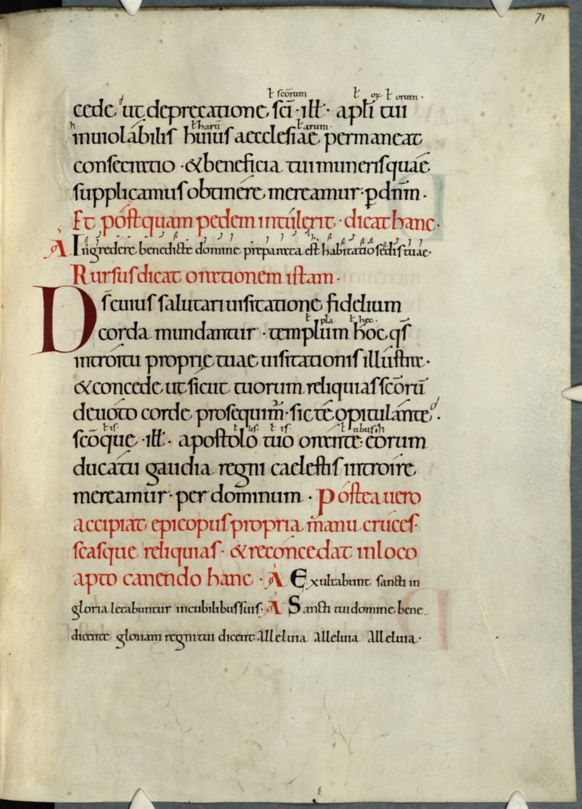 71
ł scõrum ł oꝝ ł orum·
cede ut deprecatione sc̃i ·ill̃· apl̃i tui
ł harũ ł arum·
inuiolabilis huius aecclesiae permaneat
consecratio ·&beneficia tui muneris quae
supplicamus obtinere mereamur· ꝑ dñm·
Et postquam pedem intulerit· dicat hanc·
A Ingredere benedicte domine preparata est habitatio sedis tuae·
Rursus dicat orationem istam·
ł pla ł hec·
Ds cuius salutari uisitatione fidelium
corda mundantur· templum hoc qs̃
introitu proprie tuae uisitationis illustra·
&concede ut sicut tuorum reliquias scõrũ
deuoto corde prosequim̃· sic te opitulante·
ł is· ł is· ł is· ł nibusq;
scõque ·ill̃· apostolo tuo orante eorum
ducatu gaudia regni caelestis introire
mereamur· per dominum· Postea uero
accipiat episcopus propria manu cruces
scasque reliquias· &reconcedat in loco
apto canendo hanc· A Exultabunt sancti in
gloria letabuntur in cubilibus suis· A Sancti tui domine bene-
dicente gloriam regni tui dicent Alleluia Alleluia Alleluia·